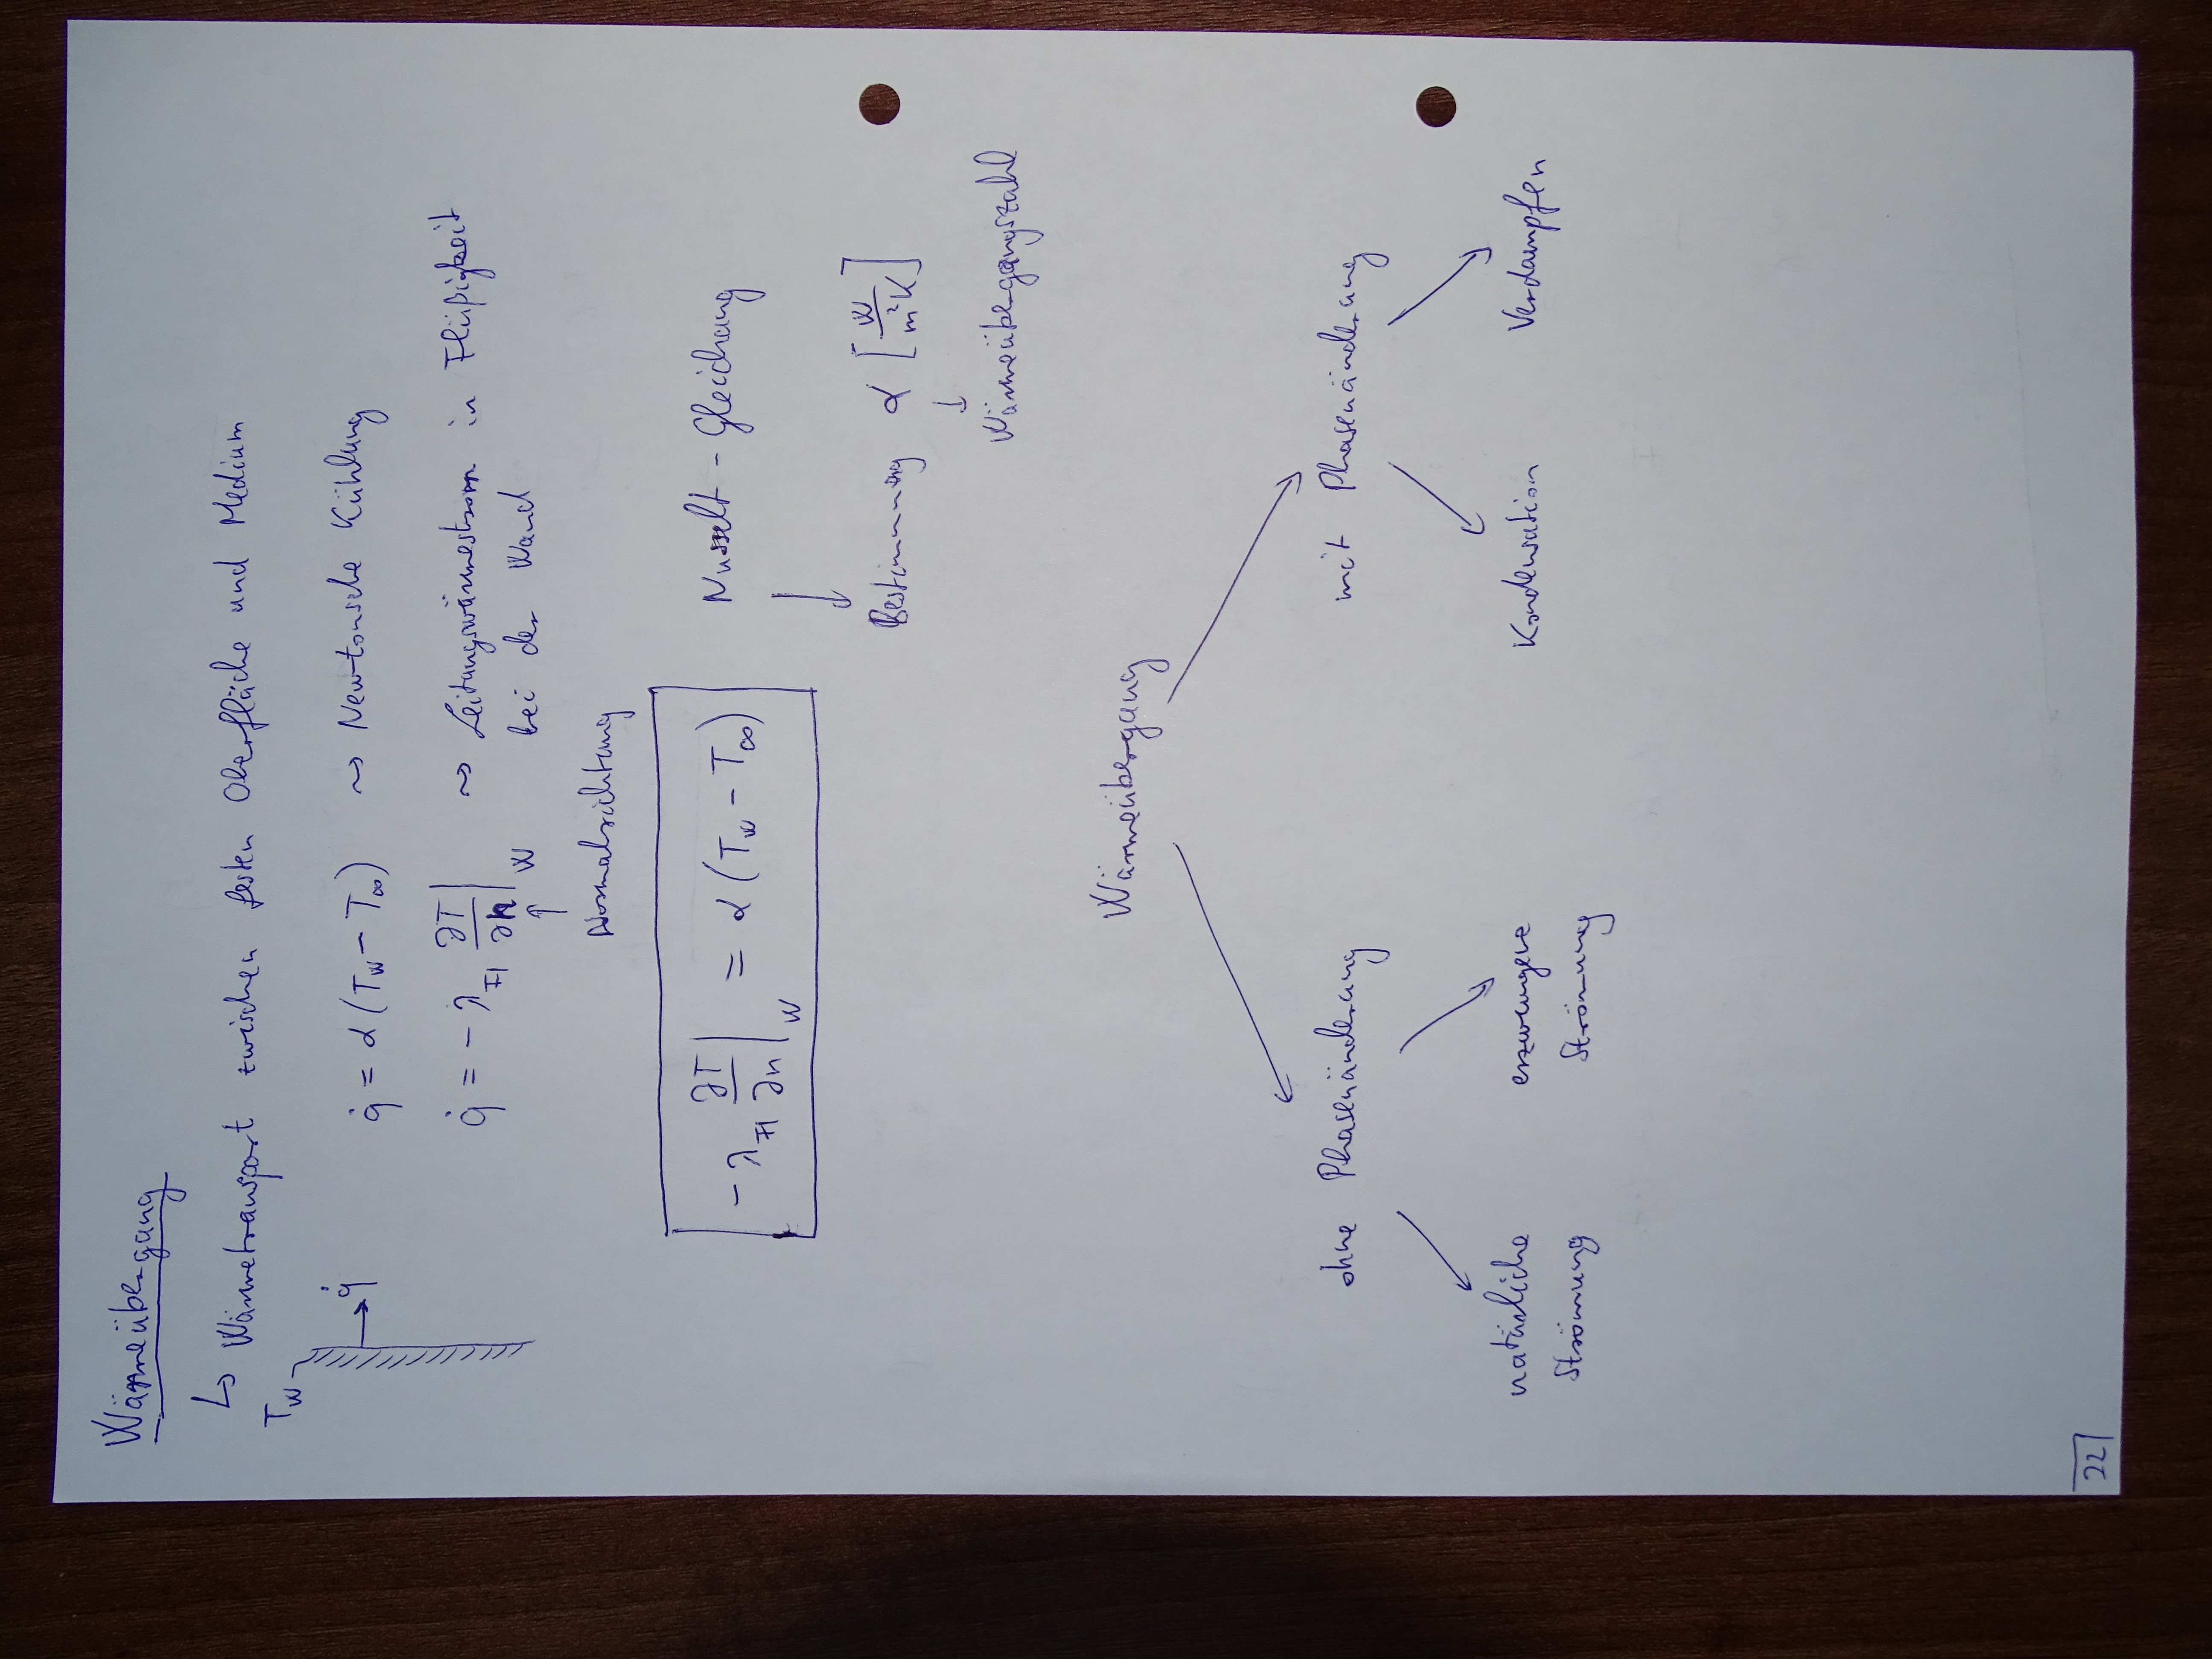 Wärmeübergang
↳ Wärmetransport zwischen festen Oberfläche und Medium
T_W
q̇
q̇ = α (T_W − T_∞) ~> Newtonsche Kühlung
q̇ = − λ_Fl ∂T/∂n |_W ~> Leitungswärmestrom in Flüßigkeit
bei der Wand
↑
Normalrichtung
− λ_Fl ∂T/∂n |_W = α (T_W − T_∞) Nusselt - Gleichung
↓
Bestimmung α [W/m²K]
↓
Wärmeübergangszahl
Wärmeübergang
ohne Phasenänderung mit Phasenänderung
natürliche erzwungene Kondensation Verdampfen
Strömung Strömung
22